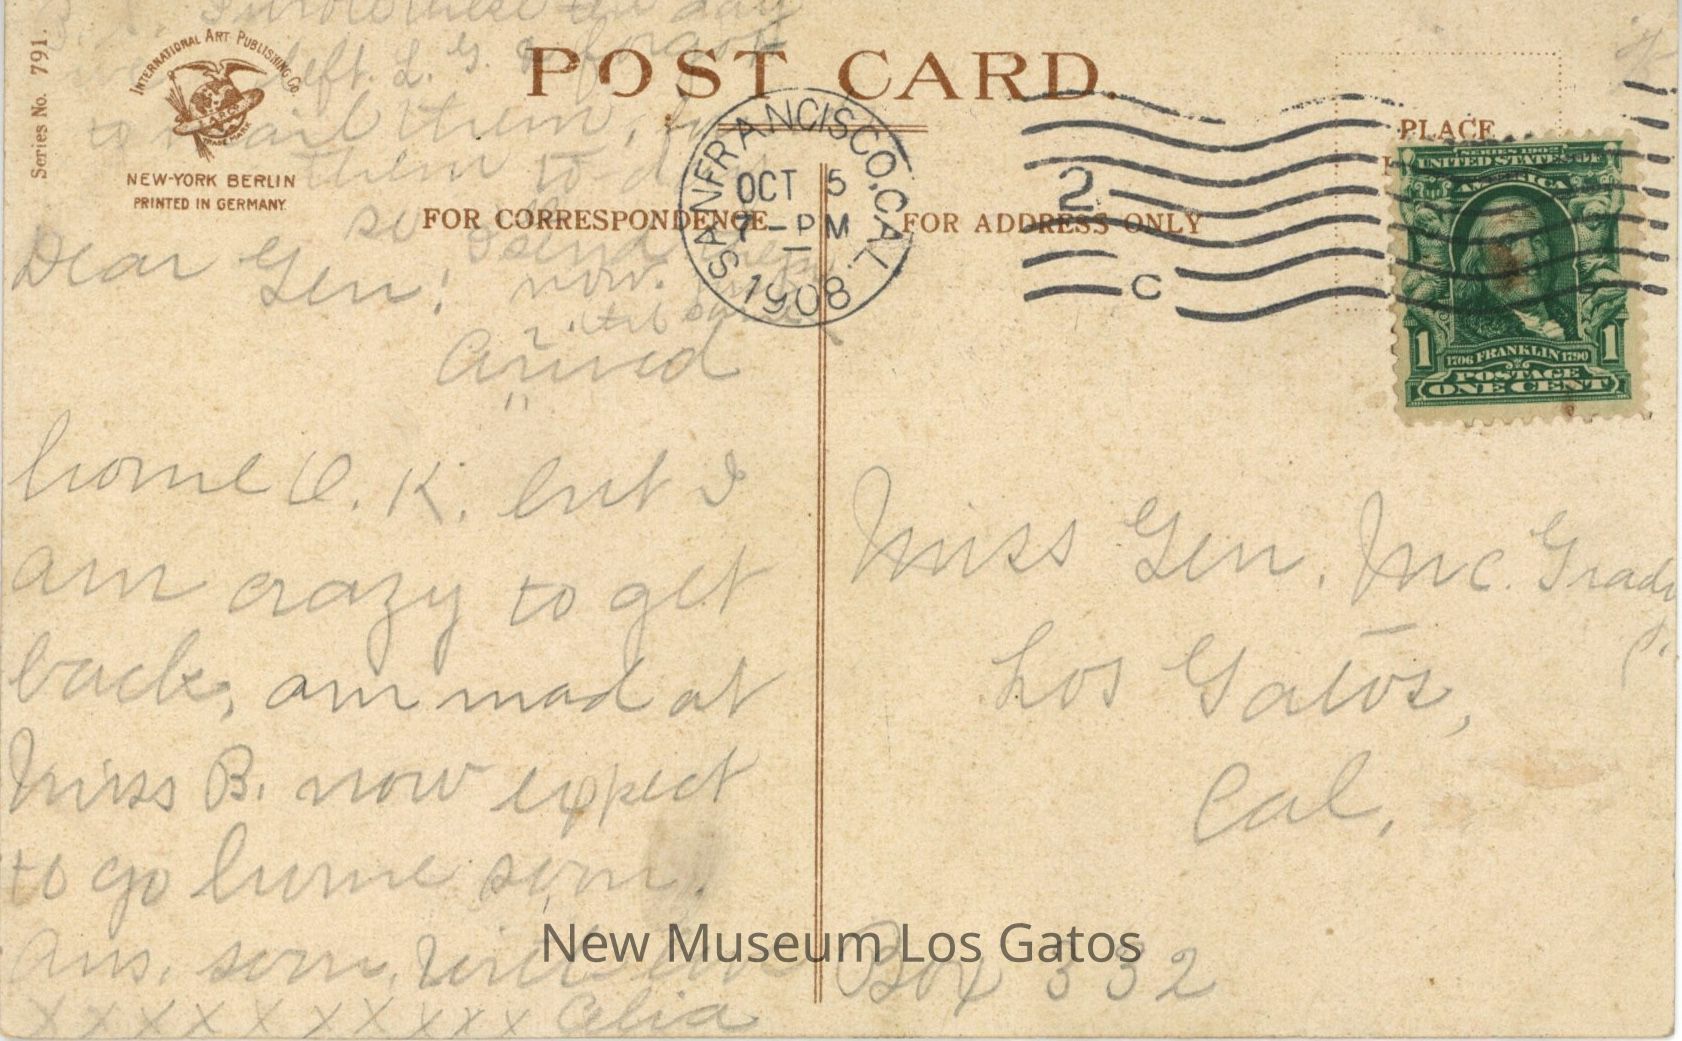 P.S. I wrote these the day
we left L. G. & forgot
to mail them,
them to day
so I send them
now.
Series No. 791.
INTERNATIONAL ART PUBLISHING Co.
TRADE MARK
NEW-YORK BERLIN
PRINTED IN GERMANY.
POST CARD.
SAN FRANCISCO, CAL.
OCT 5
7-PM
1908
2
C
FOR CORRESPONDENCE
FOR ADDRESS ONLY
PLACE
SERIES 1902
UNITED STATES OF
AMERICA
1706 FRANKLIN 1790
1 1
POSTAGE
ONE CENT
Dear Gen!
Arived
home O.K. but I
am crazy to get
back, am mad at
Miss B. now expect
to go home soon.
Ans. soon, with love
x x x x x x x x x x x Celia
Miss Gen. Mc. Grady
Los Gatos,
Cal,
Box 332
New Museum Los Gatos